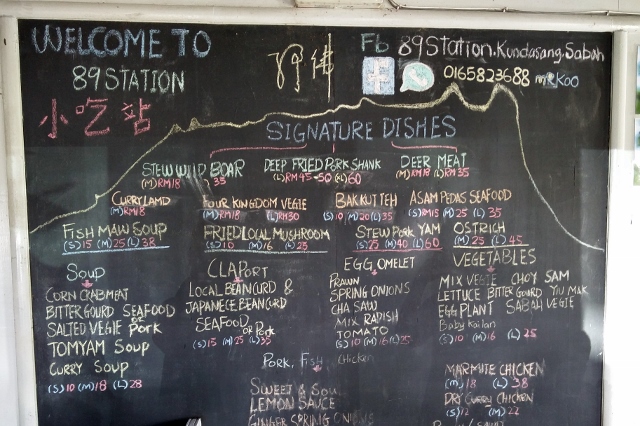 WELCOME TO
89 STATION
小吃站
Fb 89Station.Kundasang.Sabah
0165823688 mr Koo
SIGNATURE DISHES
STEW WILD BOAR
(M)RM18 35
DEEP FRIED PORK SHANK
(L)RM45-50 (L)60
DEER MEAT
(M)RM18 (L)RM35
CURRY LAMD
(M)RM18
FOUR KINGDOM VEGIE
(M)RM18 (L)RM30
BAK KUT TEH
(S)10 (M)20 (L)35
ASAM PEDAS SEAFOOD
(S)RM15 (M)25 (L)35
FISH MAW SOUP
(S)15 (M)25 (L)38
FRIED LOCAL MUSHROOM
(S)10 (M)16 (L)25
STEW PORK YAM
(S)25 (M)40 (L)60
OSTRICH
(M)25 (L)45
SOUP
CORN CRABMEAT
BITTER GOURD SEAFOOD OR
SALTED VEGIE PORK
TOMYAM SOUP
CURRY SOUP
(S)10 (M)18 (L)28
CLAPORT
LOCAL BEANCURD &
JAPANECE BEANCURD
SEAFOOD OR PORK
(S)15 (M)25 (L)35
EGG OMELET
PRAWN
SPRING ONIONS
CHA SAU
MIX RADISH
TOMATO
(S)10 (M)16 (L)25
VEGETABLES
MIX VEGIE CHOY SAM
LETTUCE BITTER GOURD YIU MAK
EGG PLANT SABAH VEGIE
Baby Kailan
(S)10 (M)16 (L)25
PORK, FISH Chicken
SWEET & SOU
LEMON SAUCE
GINGER SPRING ONIONS
MARMITE CHICKEN
(M)18 (L)38
DRY CURRY CHICKEN
(S)12 (M)22